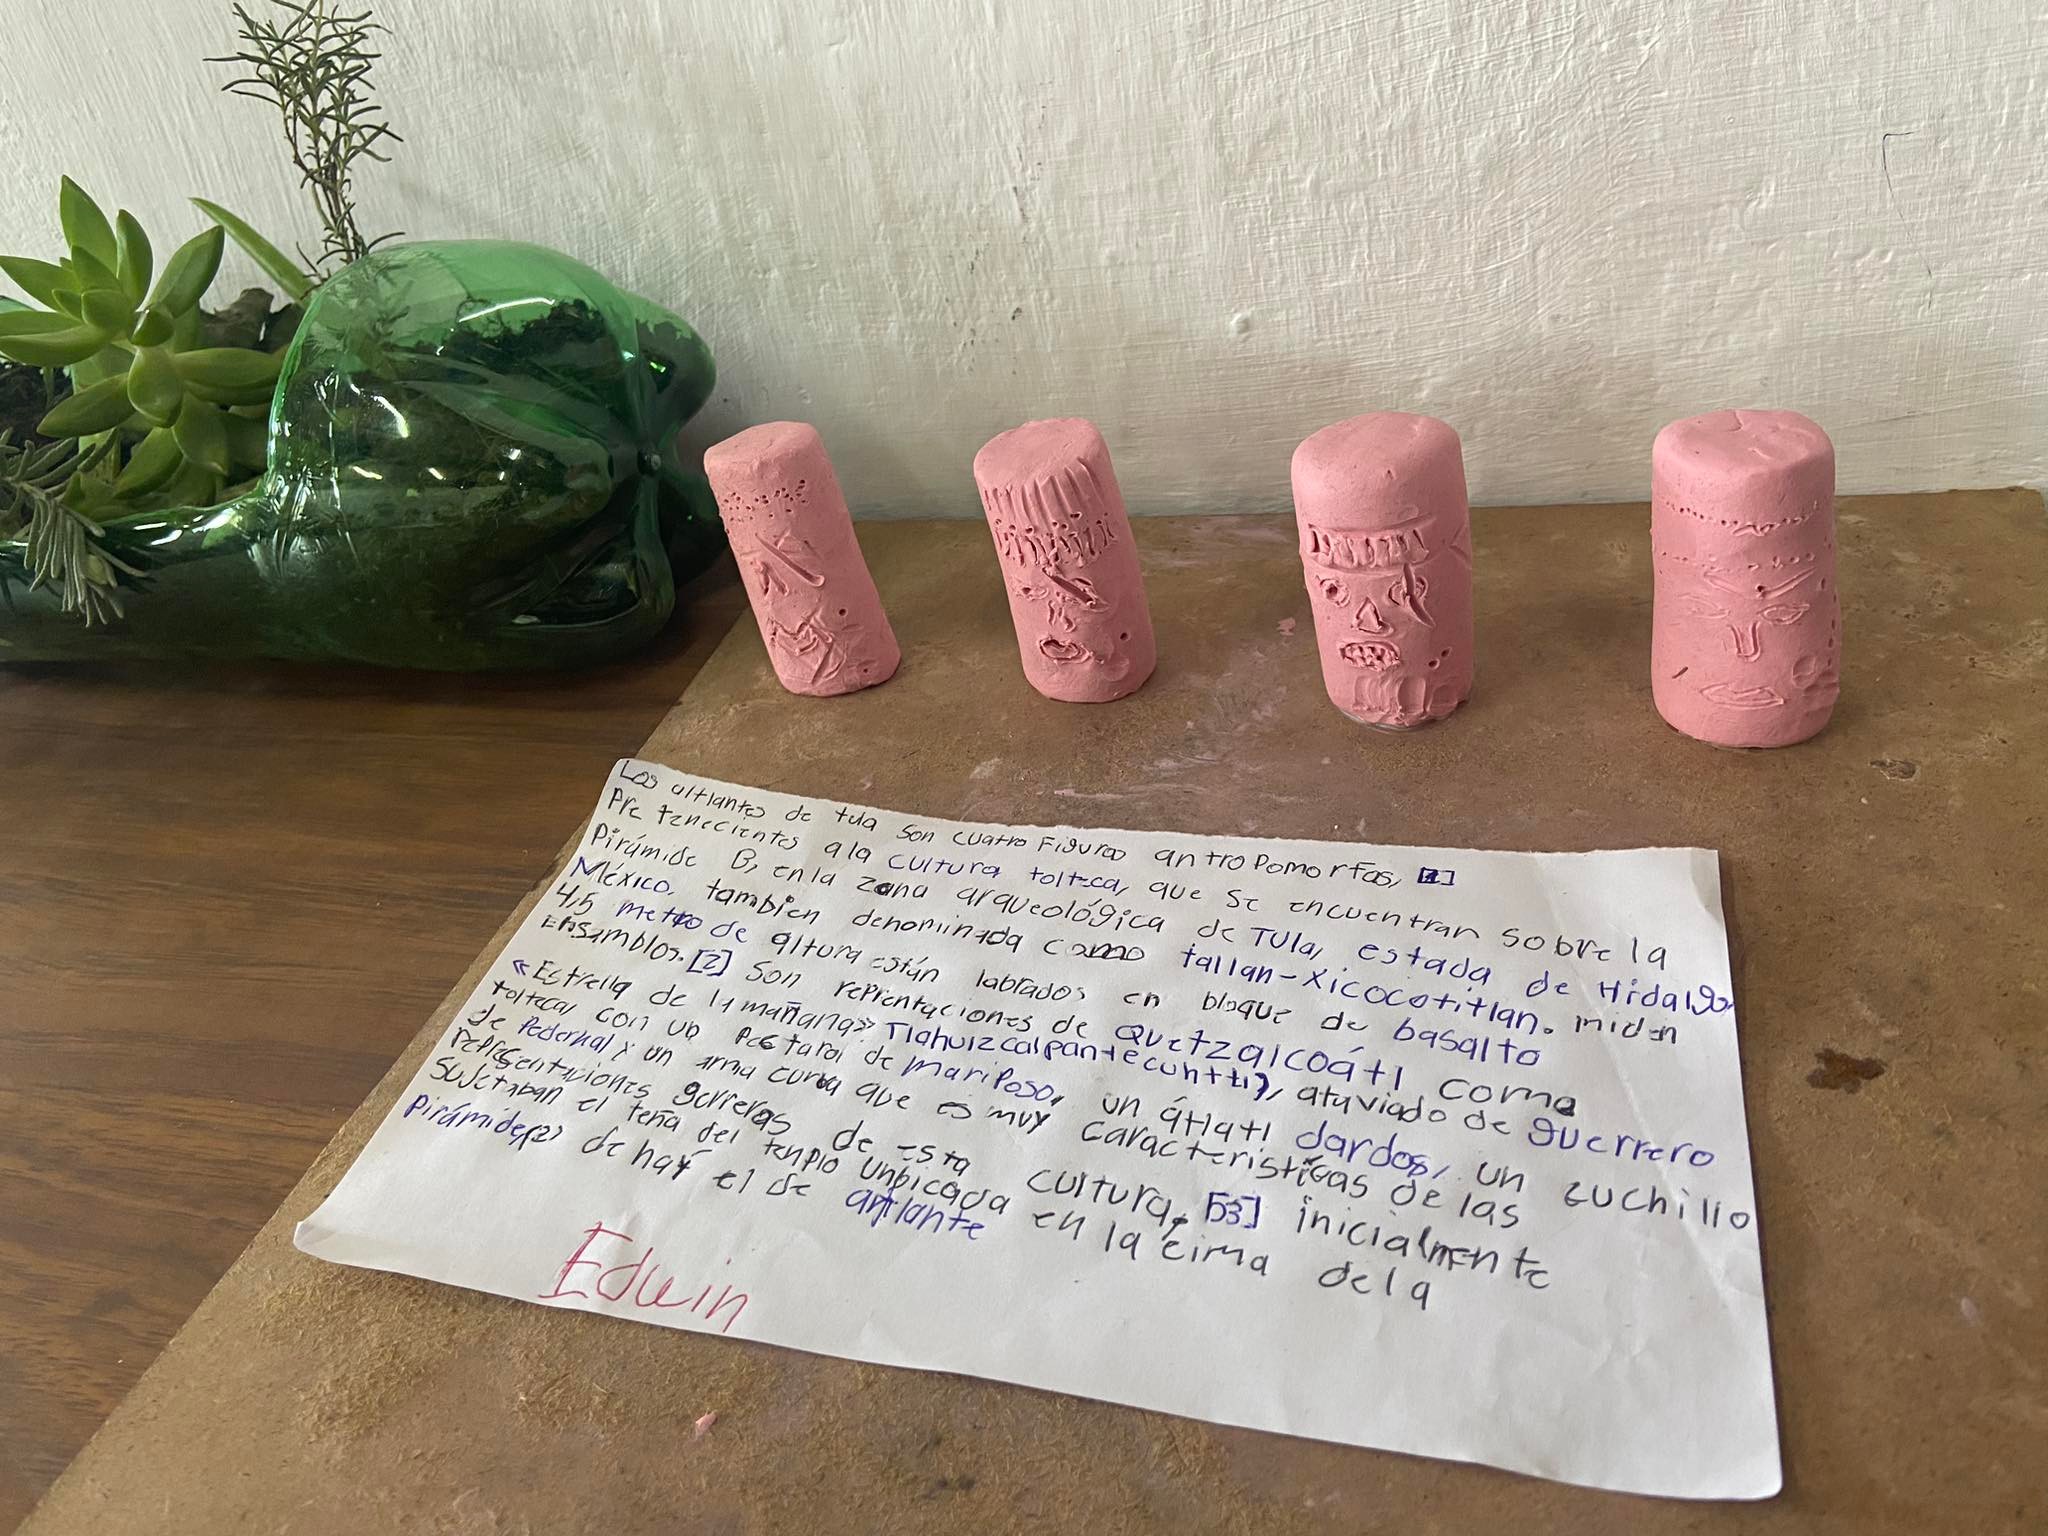 Los altlantes de tula son cuatro Figuras antroPomorfas, [1]
Pre tenecientes a la cultura tolteca, que se encuentran sobre la
Pirámide B, en la zona arqueológica de TUla, estada de Hidalgo,
México, tambien denominada como tallan-Xicocotitlan. miden
4,5 metro de altura están labrados en bloque de basalto
Ensamblos. [2] Son reprentaciones de Quetzalcoátl como
«Estrella de la mañana» Tlahuizcalpantecuhtli), ataviado de guerrero
tolteca, con un Pectaral de mariposo, un átlatl dardos, un cuchillo
de Pedernal y un arma curva que es muy características de las
representaciones gerreras de esta cultura, [3] inicialmente
Sujetaban el teña del templo unbicada en la cima de la
Pirámide,(2) de hay el de atlante
Edwin